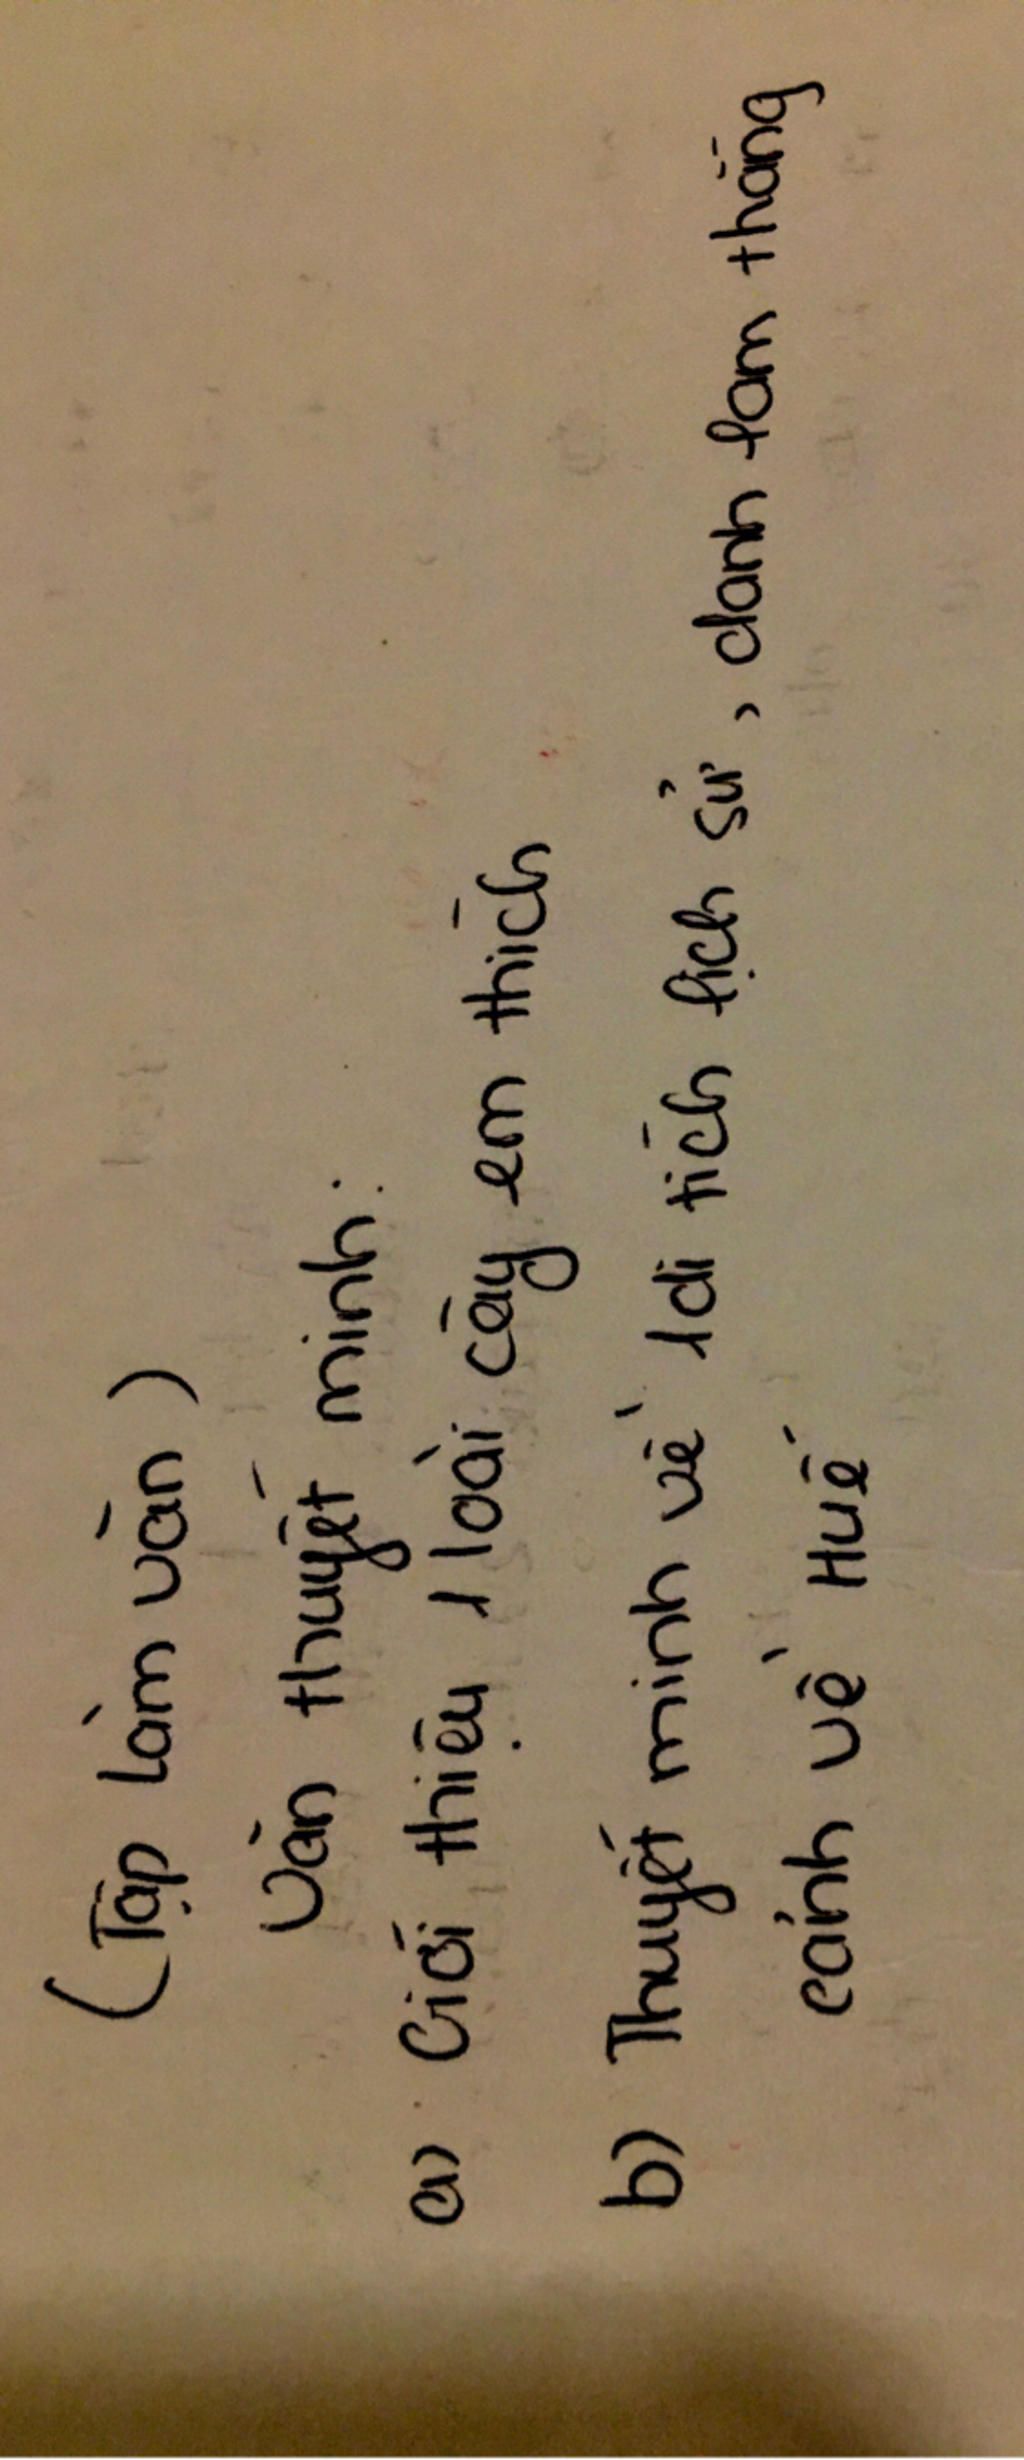 (Tập làm văn)
Văn thuyết minh:
a) Giới thiệu 1 loài cây em thích
b) Thuyết minh về 1 di tích lịch sử, danh lam thắng
cảnh về Huế